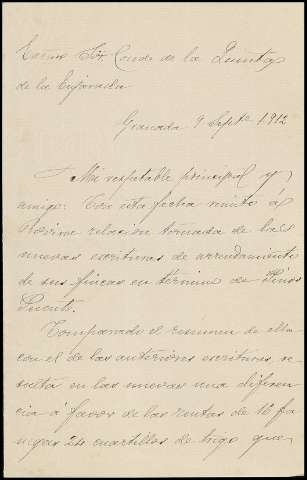 Excmo. Sr. Conde de la Quinta
de la Enjarada
Granada 9 Septe 1912
Mi respetable principal y
amigo: Con esta fecha remito á
relacion tomada de las
nuevas escrituras de arrendamiento
de sus fincas en término de Pinos
Puente.
Comparado el resúmen de ellas
con el de las anteriores escrituras, re-
sulta en las nuevas una diferen-
cia á favor de las rentas de 16 fa-
negas 24 cuartillos de trigo que